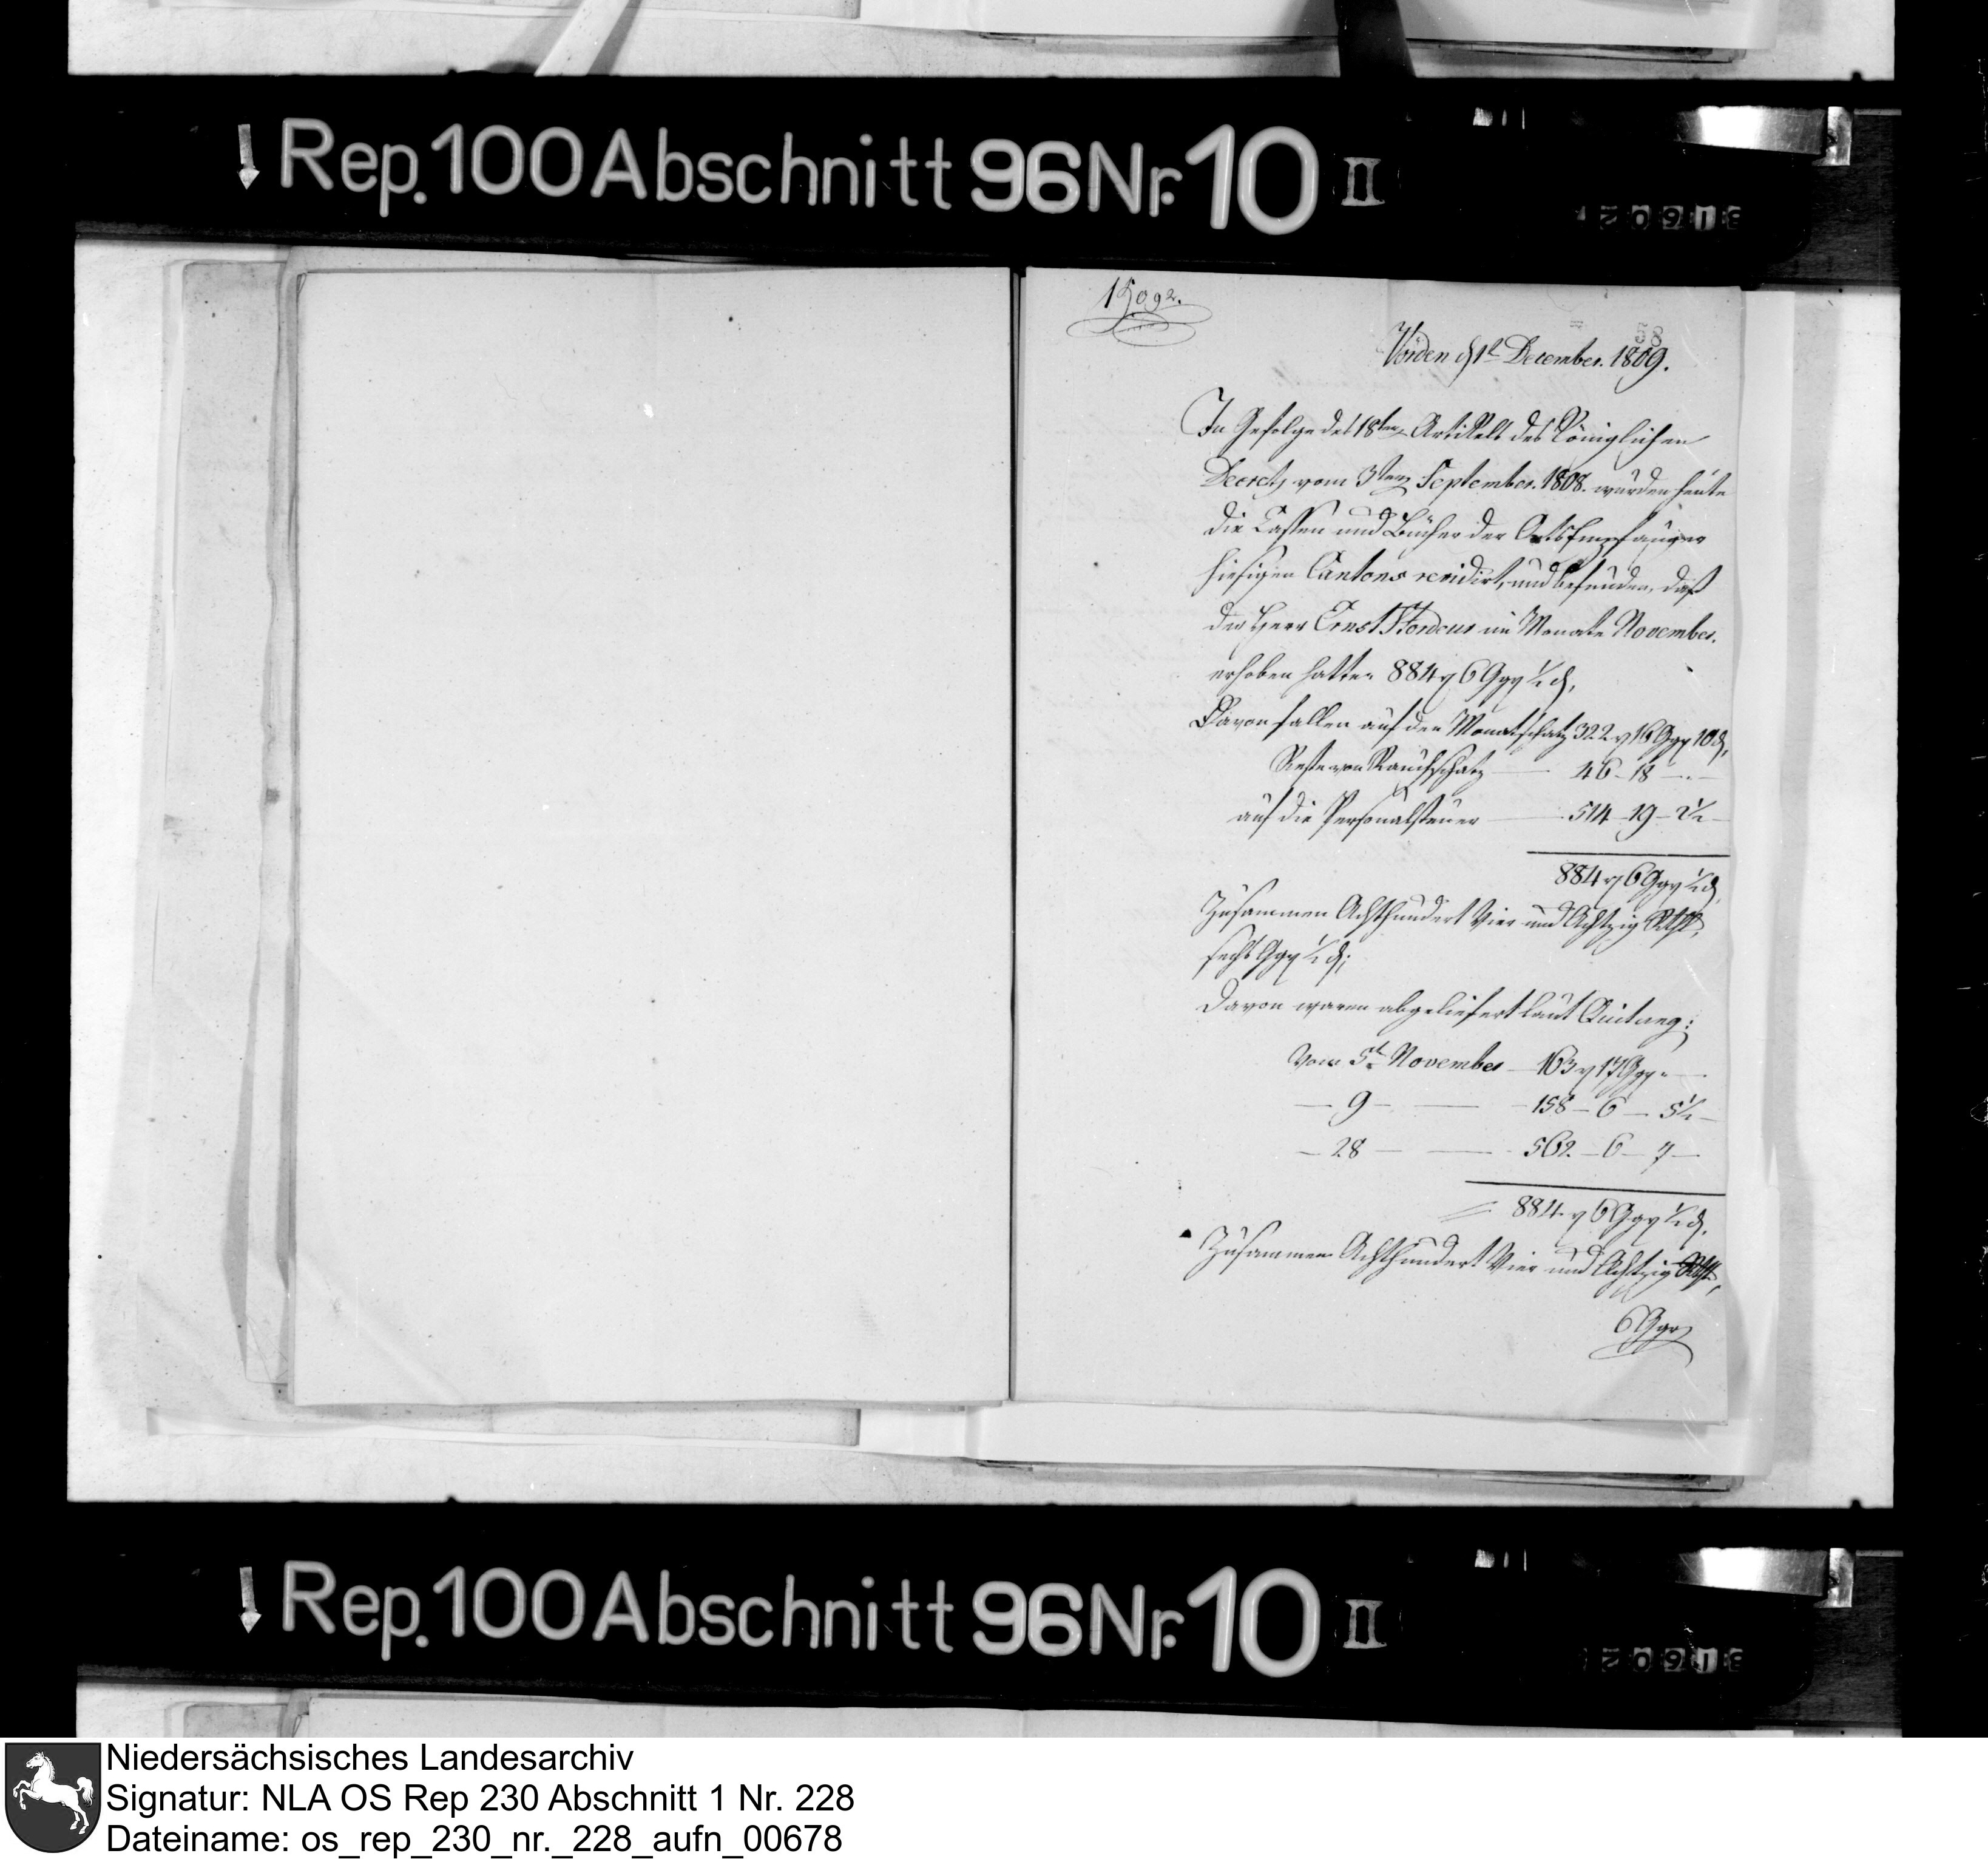 Rep. 100 Abschnitt 96 Nr. 10 II
15092.
58
Vörden d 1t December. 1809.
In Gefolge des 18ten Artikels des Königlichen
Decrets vom 3ten September. 1808. wurden heute
die Cassen und Bücher der Ortsempfänger
hiesigen Cantons revidirt, und befunden, daß
der Herr Ernst im Monate November.
erhoben hatte 884 rt 6 Ggr ½ d,
Davon fallen auf den Monatschatz 322 rt 16 Ggr 10 d,
Reste von Rauchschatz — 46 - 18 - " -
auf die Personalsteuer — 514 - 19 - 2½ -
884 rt 6 Ggr ½ d
Zusammen Achthundert Vier und Achtzig Rthl,
sechs Ggr ½ d;
Davon waren abgeliefert laut Quitung:
Vom 5t November — 163 rt 17 Ggr " —
— 9 — — 158 — 6 — 5½ —
— 28 — — 562 — 6 — 7 —
884 rt 6 Ggr ½ d.
Zusammen Achthundert Vier und Achtzig Rthl,
6 Ggr
Rep. 100 Abschnitt 96 Nr. 10 II
Niedersächsisches Landesarchiv
Signatur: NLA OS Rep 230 Abschnitt 1 Nr. 228
Dateiname: os_rep_230_nr._228_aufn_00678